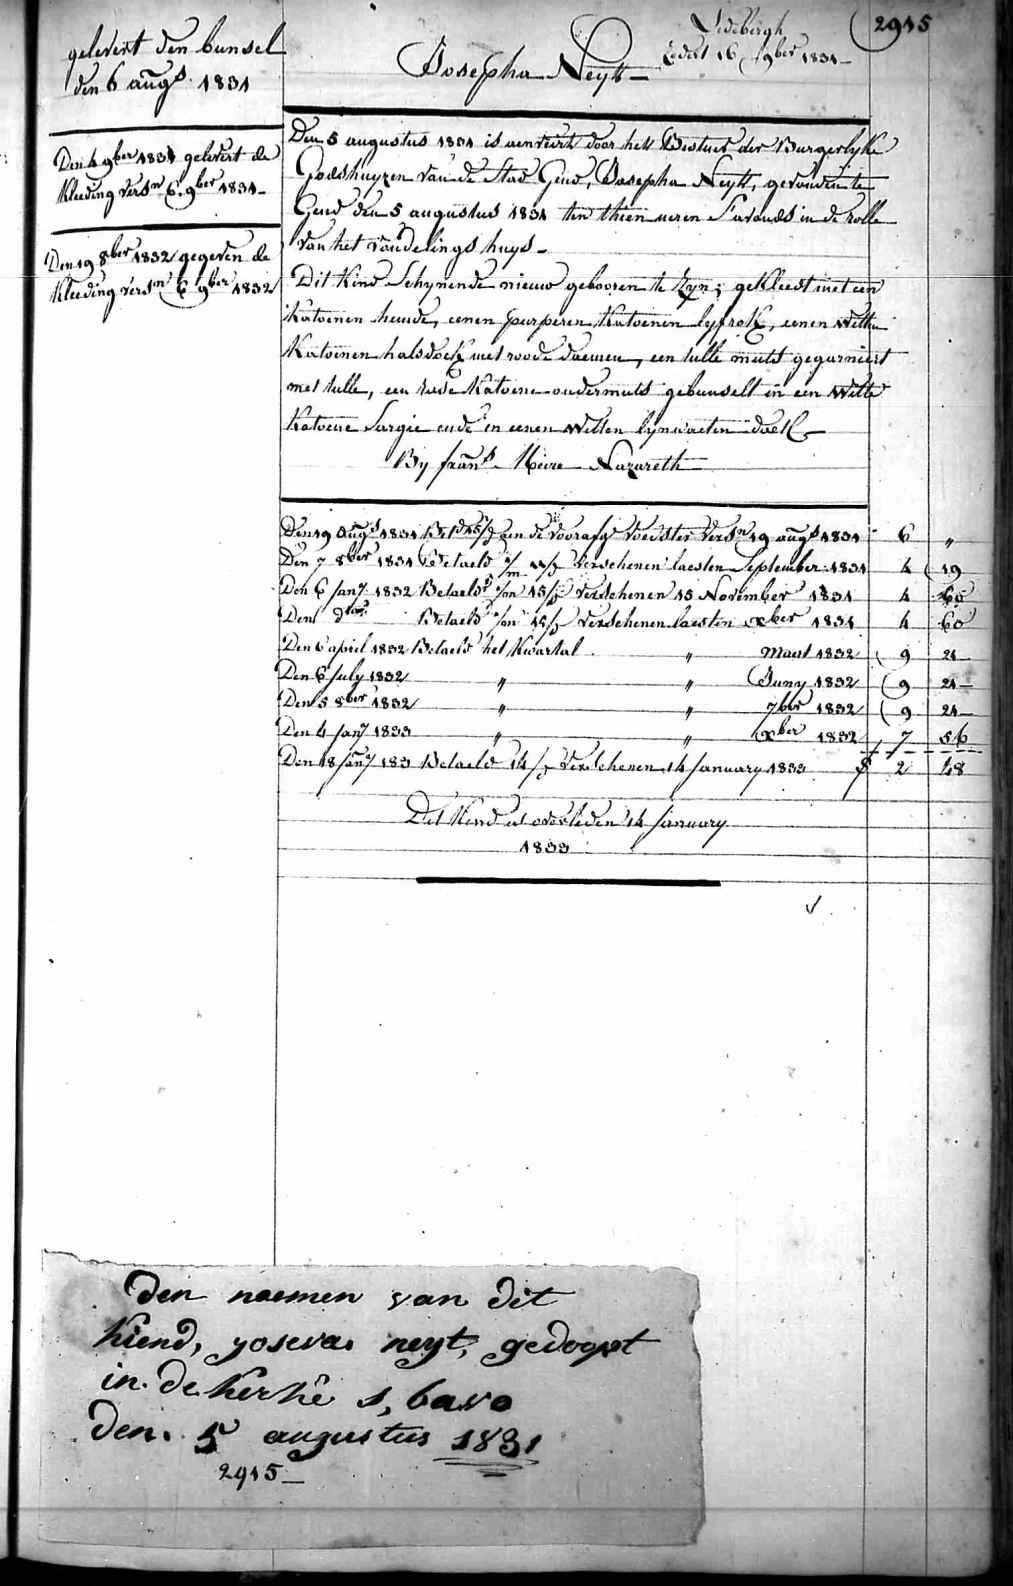 gelevert den bunsel
den 6 augs. 1831
Den 4 9ber 1831 gelevert de
Kleeding versn 6. 9ber 1831-
Den 19 8ber 1832 gegeven de
Kleeding versn 6 9ber 1832
Josepha Neyt-
Ledebergh
16 9ber 1831-
2915
Den 5 augustus 1831 is aenveirt door het Bestuer der Burgerlyke
Godshuyzen van de Stad Gend, Josepha Neyt, gevonden te
Gend den 5 augustus 1831 ten thien ueren s'avonds in de rolle
van het vondelings huys-
Dit Kind Schynende nieuw gebooren te Zyn; gekleed met een
Katoenen hemde, eenen purperen Katoenen lyfrok, eenen Witten
Katoenen halsdoek met roode bloemen, een tulle muts gegarniert
met tulle, een katoene ondermuts gebunselt in een Witte
Katoene Sargie ende in eenen Witten lynwaeten doek-
By frans. Meire Nazareth
Den 19 augs 1831 Bet. aen de voorafg. Voedster versn 19 augs 1831 6 "
Den 7 8ber 1831 Betaeld Verschenen laesten September 1831 4 19
Den 6 Jany 1832 Betaeld 45/ Verschenen 15 November 1831 4 60
Den do. Betaeld 45/ Verschenen laesten xber 1831 4 60
Den 6 april 1832 Betaeld het Kwartal " Maert 1832 9 21
Den 6 July 1832 " " Juny 1832 9 21-
Den 5 8ber 1832 " " 7ber 1832 9 21-
Den 4 Jany 1833 " " xber 1832 7 56
Den 18 Jany 183 Betaeld 14/ Verschenen 14 January 1833 f 2 48
Dit Kind is overleden 14 January
1833
den naemen van dit
kiend, yoseva neyt, gedoopt
in de kerke s, bavo
den. 5 augustus 1831
2915-